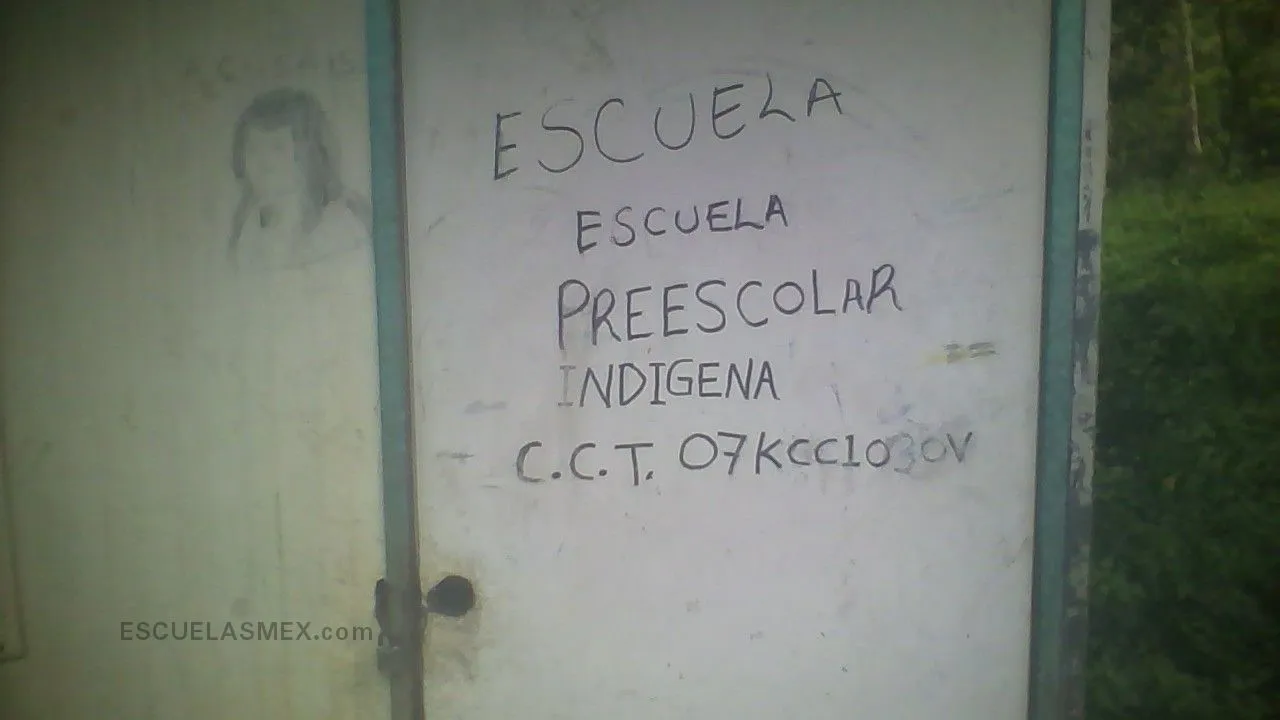 ESCUELA
ESCUELA
PREESCOLAR
INDIGENA
C.C.T. 07KCC1030V
ESCUELASMEX.com